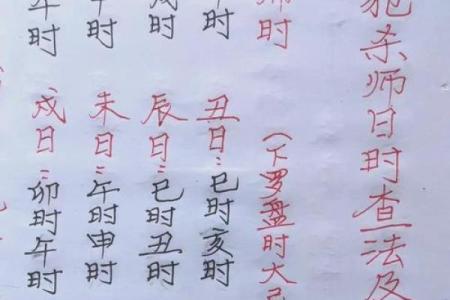 犯杀师日时查法及
(下罗盘时大忌
时
丑日:巳时亥时
时
辰日:巳时丑时
午时
未日:午时申时
年时
戌日:卯时午时